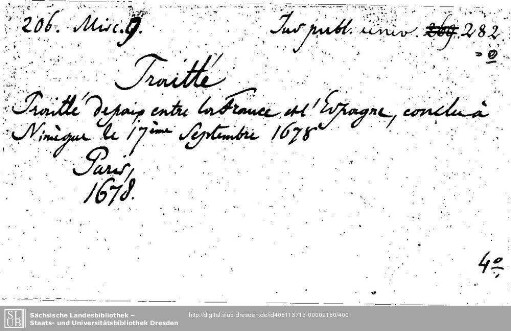 206. Misc. 9. Jus publ. univ. 269 282
=0
Traitté
Traitté de paix entre la France et l'Espagne, conclu à
Nimègue le 17ème Septembre 1678
Paris,
1678.
4º
Sächsische Landesbibliothek –
Staats- und Universitätsbibliothek Dresden